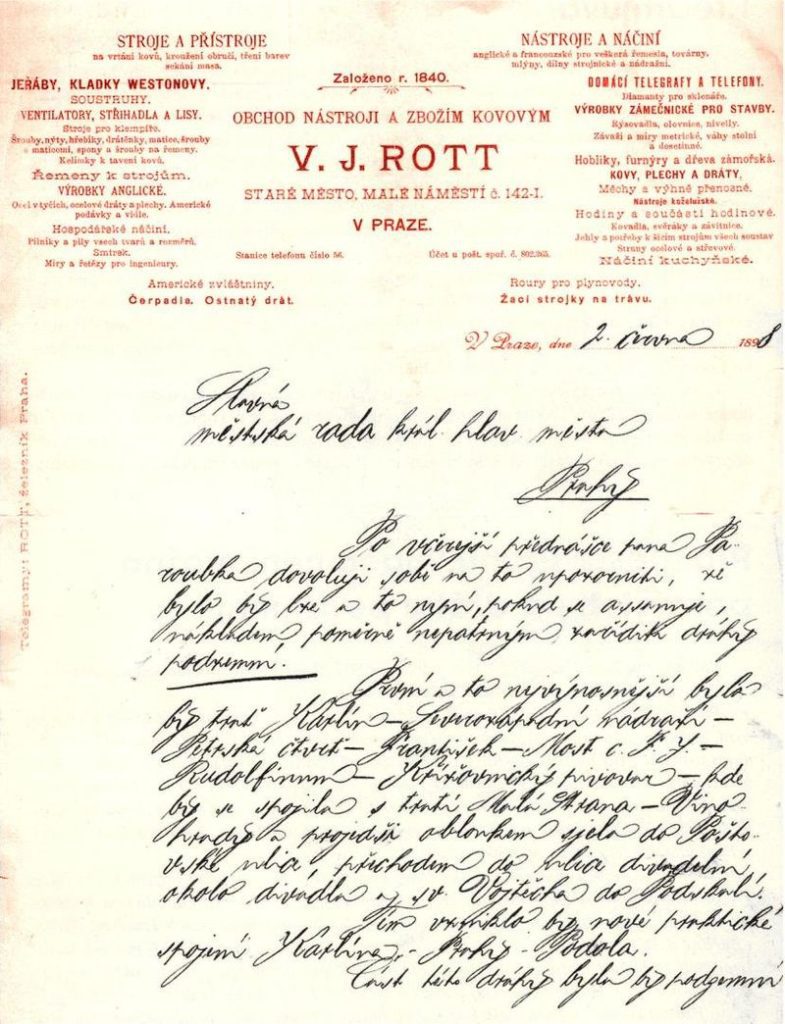 STROJE A PŘÍSTROJE
na vrtání kovů, kroužení obručí, tření barev
sekání masa.
JEŘÁBY, KLADKY WESTONOVY.
SOUSTRUHY.
VENTILATORY, STŘIHADLA A LISY.
Stroje pro klempíře.
Šrouby, nýty, hřebíky, drátěnky, matice, šrouby
s maticemi, spony a šrouby na řemeny.
Kelímky k tavení kovů.
Řemeny k strojům.
VÝROBKY ANGLICKÉ.
Ocel v tyčích, ocelové dráty a plechy. Americké
podávky a vidle.
Hospodářské náčiní.
Pilníky a pily všech tvarů a rozměrů.
Smirek.
Míry a řetězy pro ingenieury.
Americké zvláštniny.
Čerpadla. Ostnatý drát.
Založeno r. 1840.
OBCHOD NÁSTROJI A ZBOŽÍM KOVOVÝM
V. J. ROTT
STARÉ MĚSTO, MALÉ NÁMĚSTÍ č. 142-I.
V PRAZE.
Stanice telefonu číslo 56.
Účet u pošt. spoř. č. 802.265.
NÁSTROJE A NÁČINÍ
anglické a francouzské pro veškerá řemesla, továrny,
mlýny, dílny strojnické a nádražní.
DOMÁCÍ TELEGRAFY A TELEFONY.
Diamanty pro sklenáře.
VÝROBKY ZÁMEČNICKÉ PRO STAVBY.
Rýsovadla, olovnice, nivelly.
Závaží a míry metrické, váhy stolní
a desetinné.
Hoblíky, furnýry a dřeva zámořská.
KOVY, PLECHY A DRÁTY,
Měchy a výhně přenosné.
Nástroje koželužské.
Hodiny a součásti hodinové.
Kovadla, svěráky a závitnice.
Jehly a potřeby k šicím strojům všech soustav
Struny ocelové a střevové.
Náčiní kuchyňské.
Roury pro plynovody.
Žací strojky na trávu.
V Praze, dne 2. června 1898
Telegramy: ROTT, železník Praha.
Slavná
městská rada král. hlav. města
Prahy
Po včerejší přednášce pana Pa-
roubka dovoluji sobě na to upozorniti, že
bylo by lze a to nyní, pokud se assanuje,
nákladem poměrně nepatrným zříditi dráhy
podzemní.
První a to nejvýnosnější byla
by trať Karlín – Severozápadní nádraží –
Petrská čtvrť – František – Most c. F. J. –
Rudolfinum – Křižovnický pivovar – kde
by se spojila s tratí Malá Strana – Vino-
hrady a projedši obloukem sjela do Pošto-
vské ulice, přechodem do ulice divadelní,
okolo divadla a sv. Vojtěcha do Podskalí.
Tím vzniklo by nové praktické
spojení Karlína – Prahy – Podola.
Část této dráhy byla by podzemní